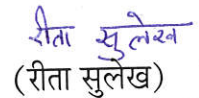 रीता सुलेख
(रीता सुलेख)